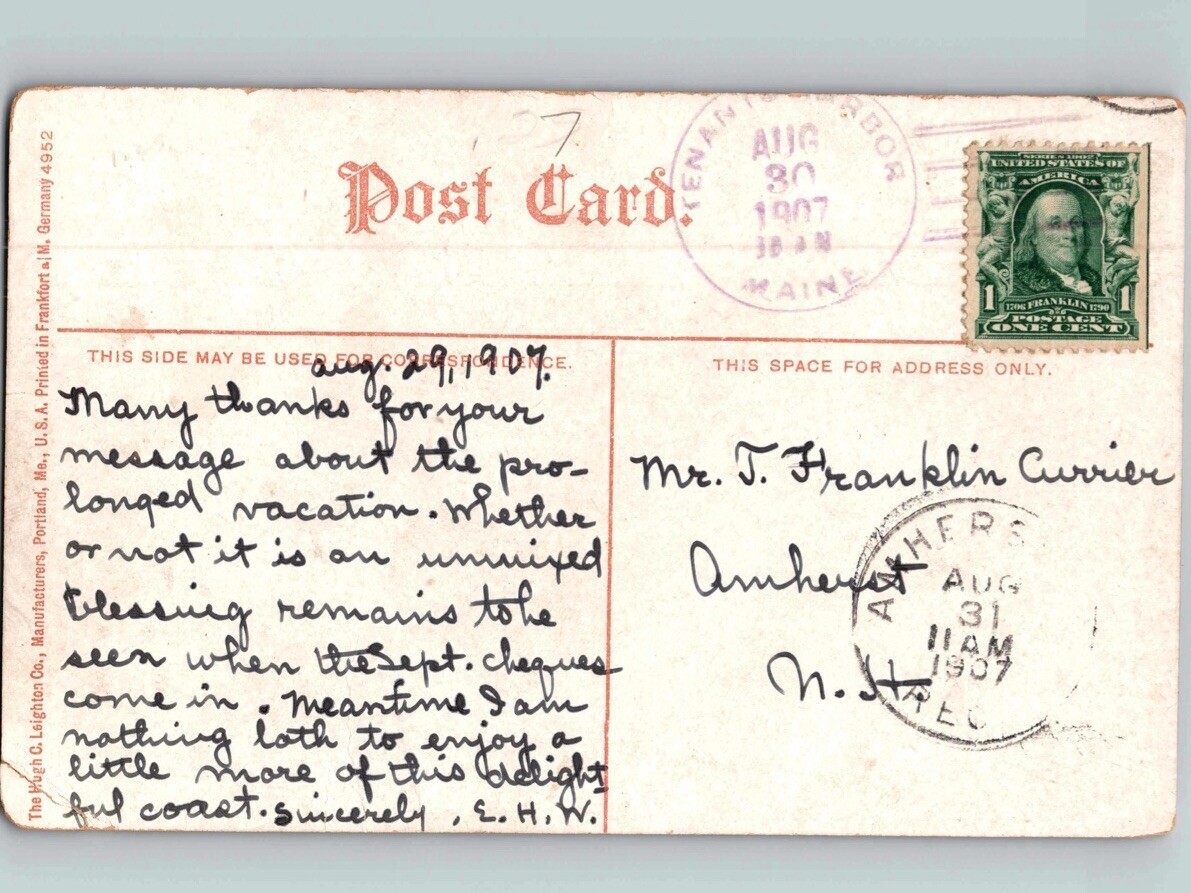 Post Card.
TENANTS HARBOR
AUG
30
1907
MAINE
SERIES 1902
UNITED STATES OF
AMERICA
1 1706 FRANKLIN 1790 1
POSTAGE
ONE CENT
The Hugh C. Leighton Co., Manufacturers, Portland, Me., U.S.A. Printed in Frankfort a/M, Germany 4952
THIS SIDE MAY BE USED FOR CORRESPONDENCE.
Aug. 29, 1907.
Many thanks for your
message about the pro-
longed vacation. Whether
or not it is an unmixed
blessing remains to be
seen when the Sept. cheques
come in. Meantime I am
nothing loth to enjoy a
little more of this delight
ful coast. Sincerely, E. H. W.
THIS SPACE FOR ADDRESS ONLY.
Mr. T. Franklin Currier
Amherst
N. H.
AMHERS
AUG
31
11 AM
1907
REC